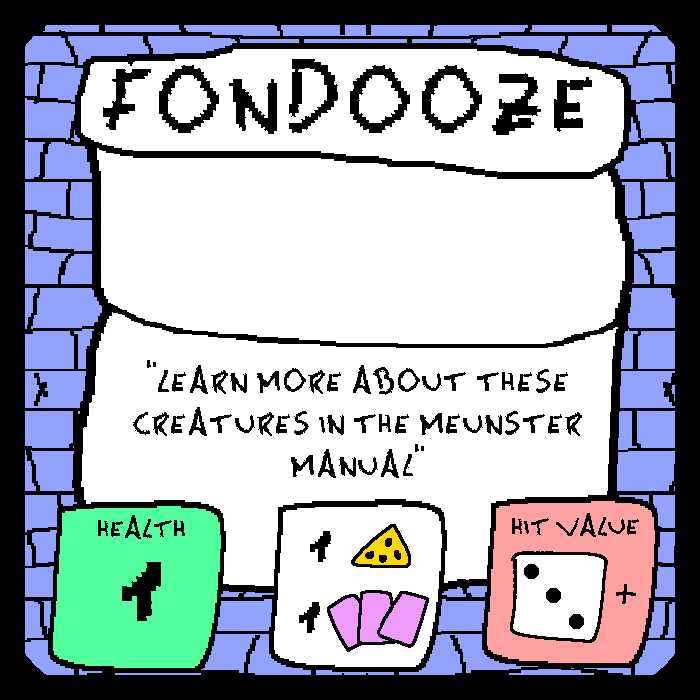 FONDOOZE
"LEARN MORE ABOUT THESE
CREATURES IN THE MEUNSTER
MANUAL"
HEALTH
1
1
1
HIT VALUE
+